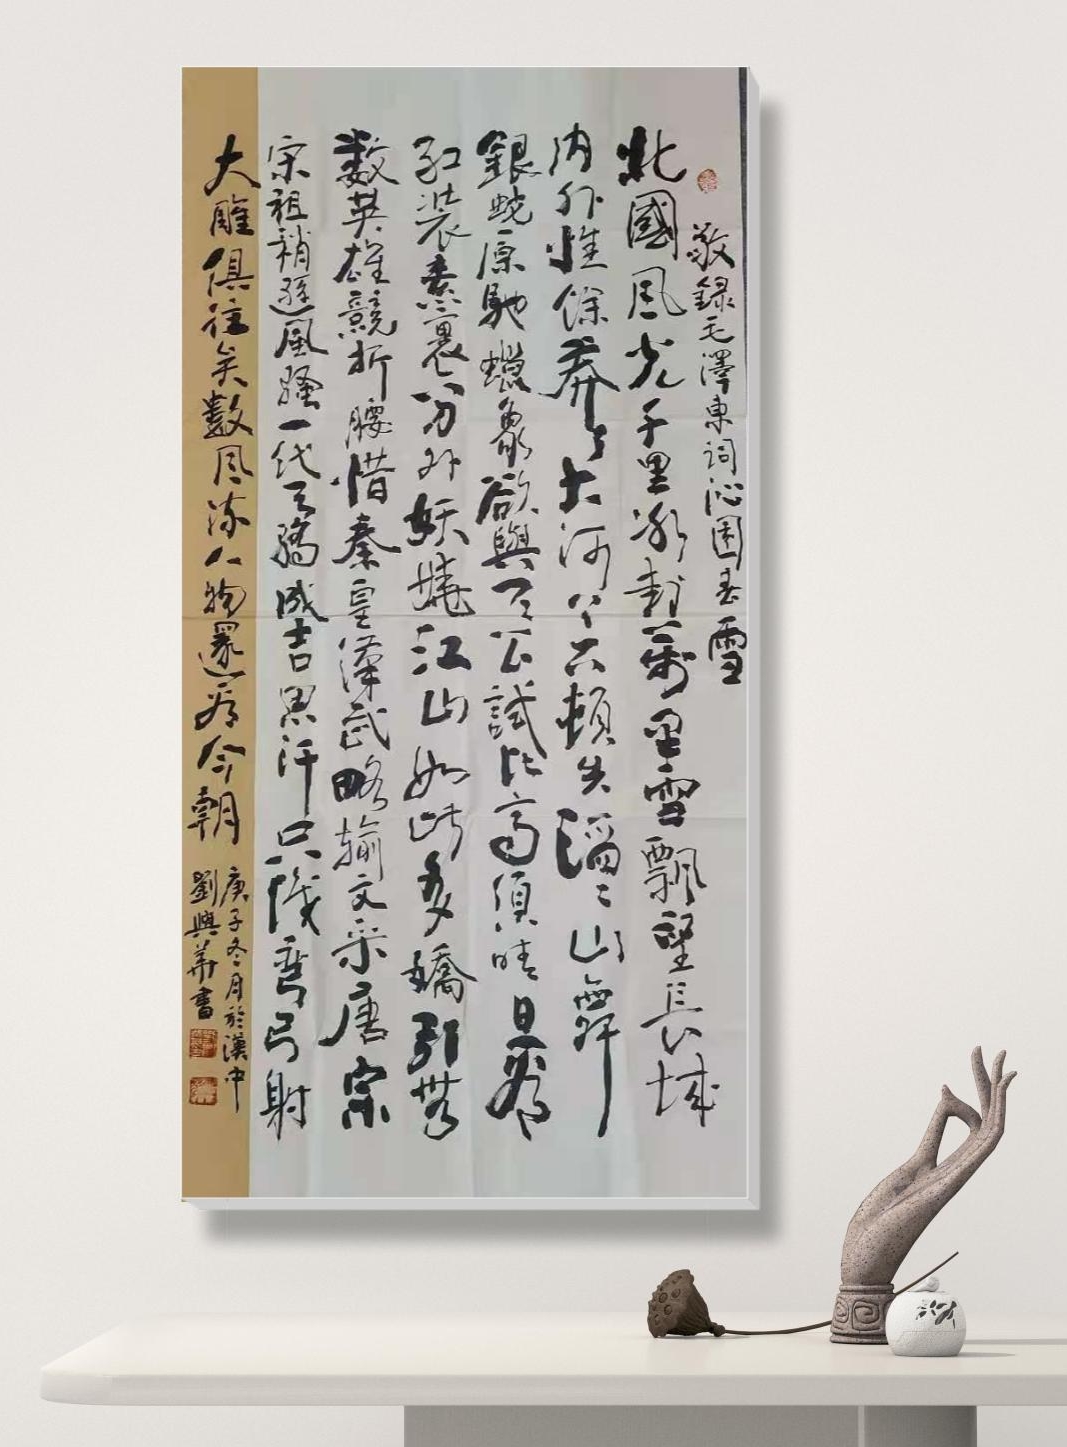 敬録毛澤東詞沁園春雪
北國风光千里冰封萬里雪飄望長城
内外惟餘莽々大河上下頓失滔々山舞
銀蛇原馳蠟象欲與天公試比高須晴日看
紅装素裹分外妖嬈江山如此多嬌引無
数英雄競折腰惜秦皇漢武略輸文采唐宗
宋祖稍遜風騷一代天驕成吉思汗只識彎弓射
大雕俱往矣數风流人物還看今朝
庚子冬月於漢中
劉興華書